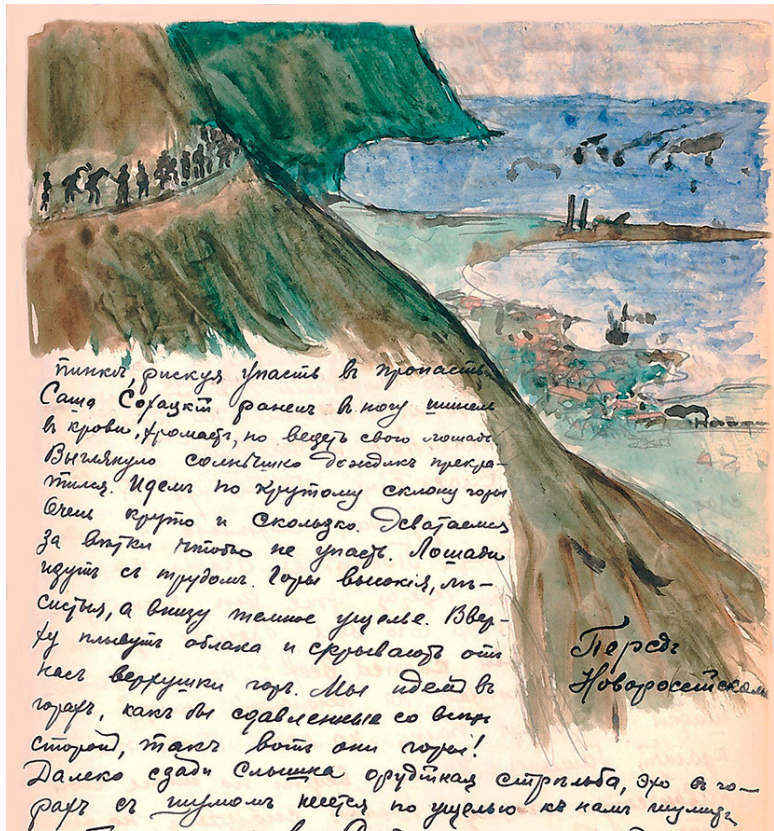 пинкѣ, рискуя упасть въ пропасть.
Саша Сохацкiй раненъ въ ногу шинель
въ крови, хромаетъ, но ведетъ свою лошадь
Выглянуло солнышко дождикъ прекра-
тился. Идемъ по крутому склону горы
Очень круто и скользко. Хватаемся
за вѣтки чтобы не упасть. Лошади
идутъ съ трудомъ. Горы высокiя, лѣ-
систыя, а внизу темное ущелье. Ввер-
ху плывутъ облака и скрываютъ отъ
насъ верхушки горъ. Мы идемъ въ
горахъ, какъ бы сдавленные со всѣхъ
сторонъ, такъ вотъ они горы!
Далеко сзади слышна орудiйная стрѣльба, эхо въ го-
рахъ съ шумомъ несется по ущелью къ намъ
Передъ
Новороссiйскомъ